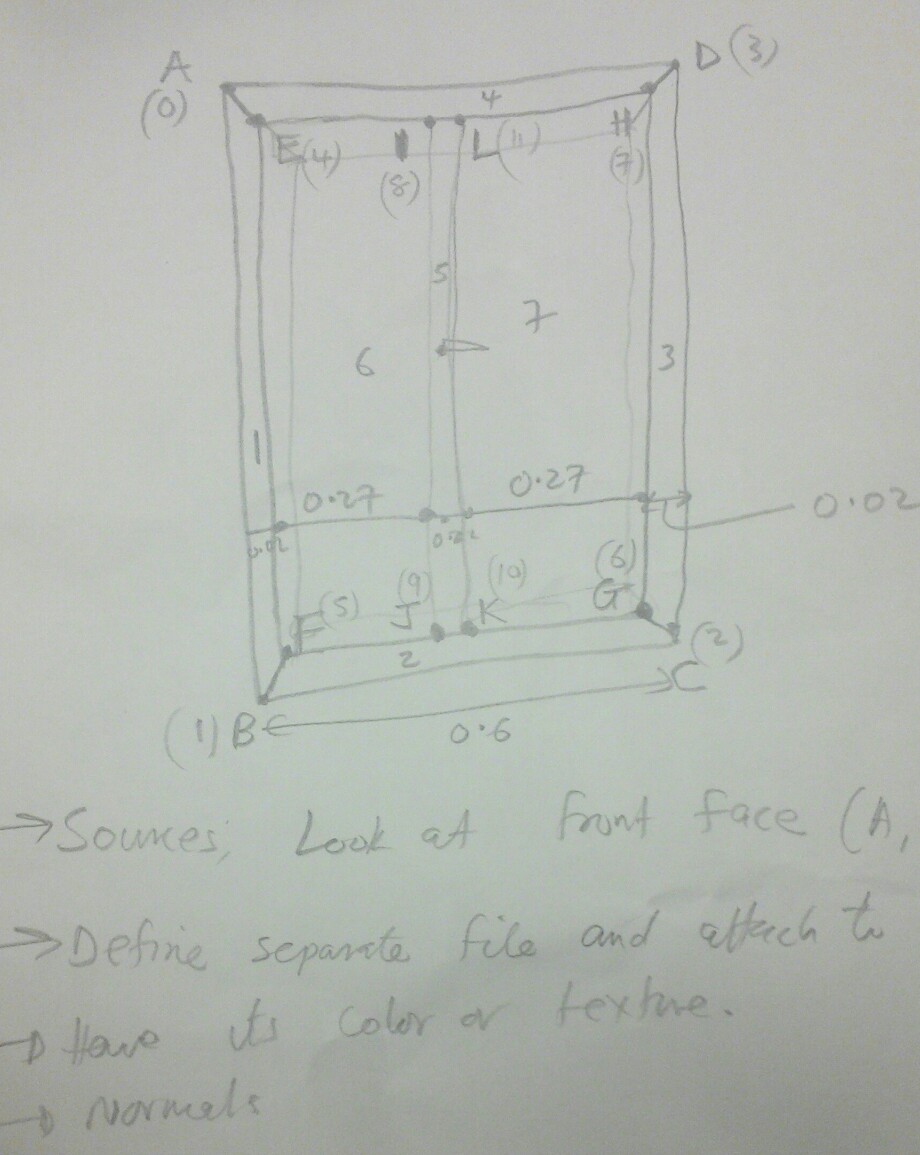 A
D (3)
(0)
4
E (4)
I
L (11)
H
(8)
(7)
5
7
6
3
1
0.27
0.27
0.02
0.02
(5)
(9)
(10)
(6)
F
J
K
G
2
(2)
C
(1) B
0.6
→ Sources, Look at front face (A,
→ Define separate file and attach to
→ Have its color or texture.
→ Normals